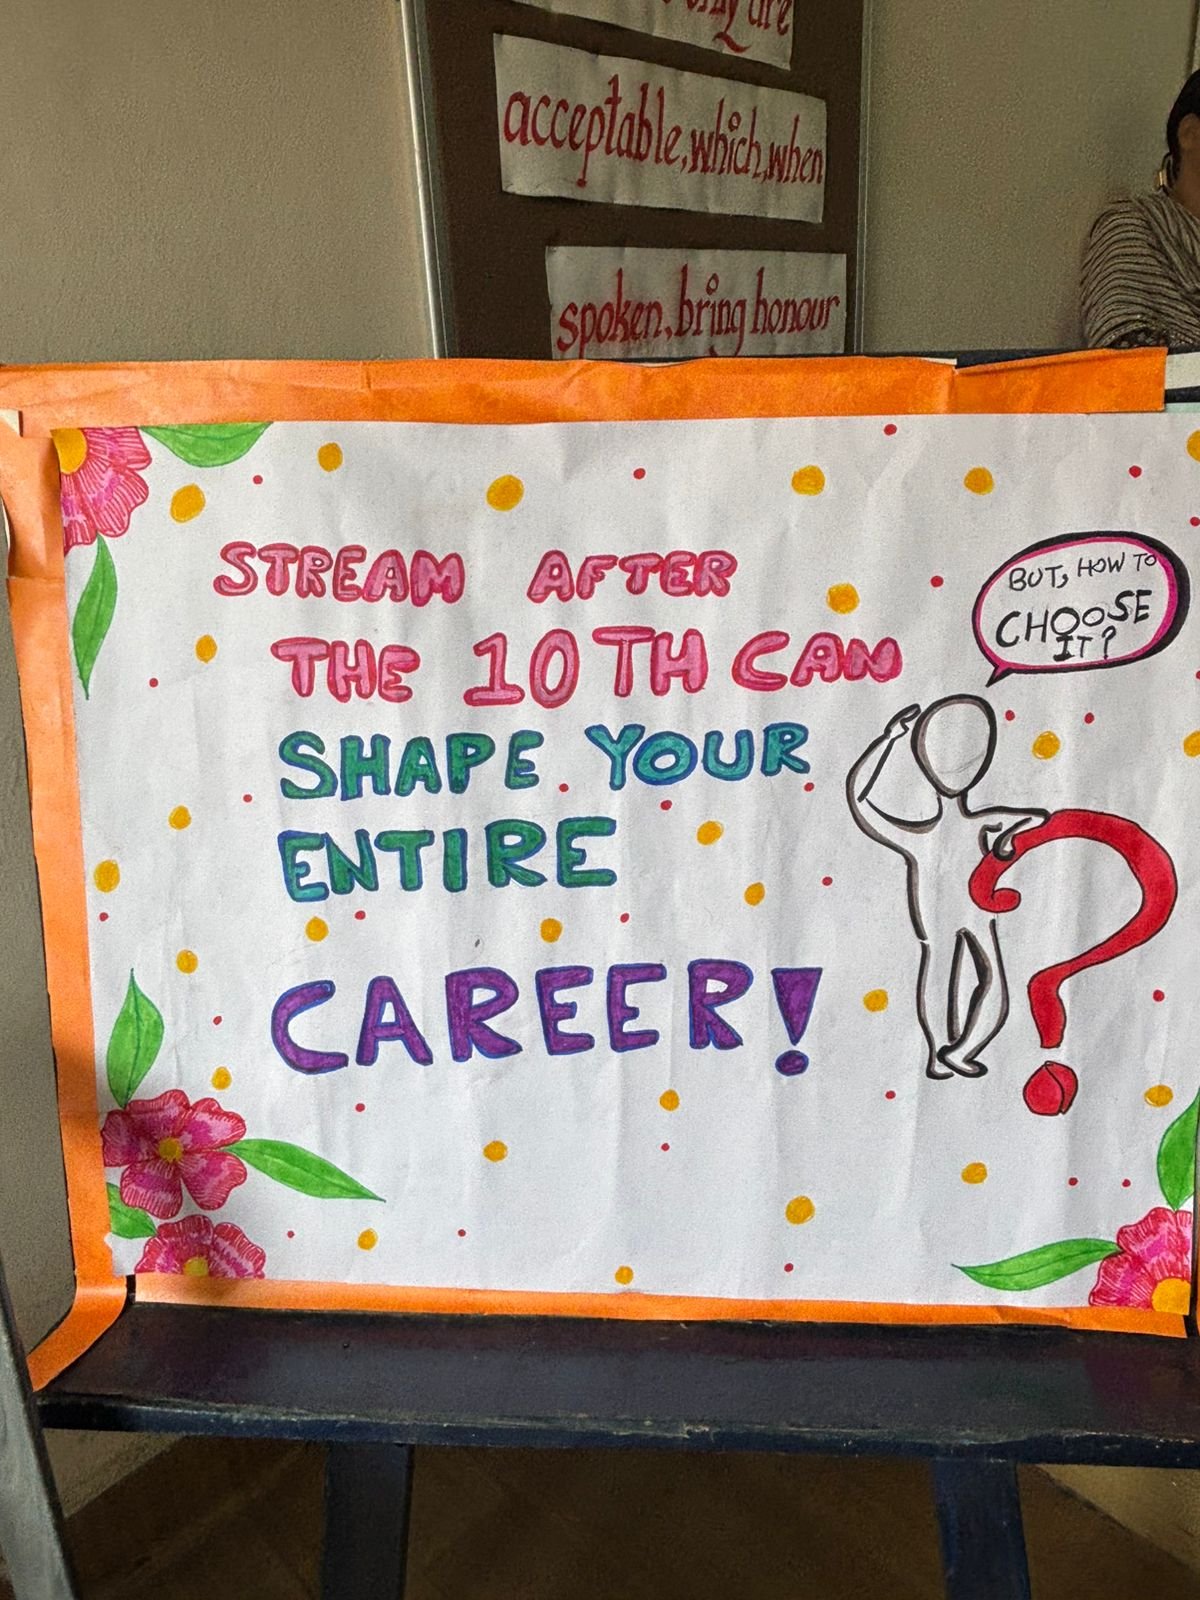 only are
acceptable, which, when
spoken, bring honour
STREAM AFTER
THE 10TH CAN
SHAPE YOUR
ENTIRE
CAREER!
BUT, HOW TO
CHOOSE
IT?